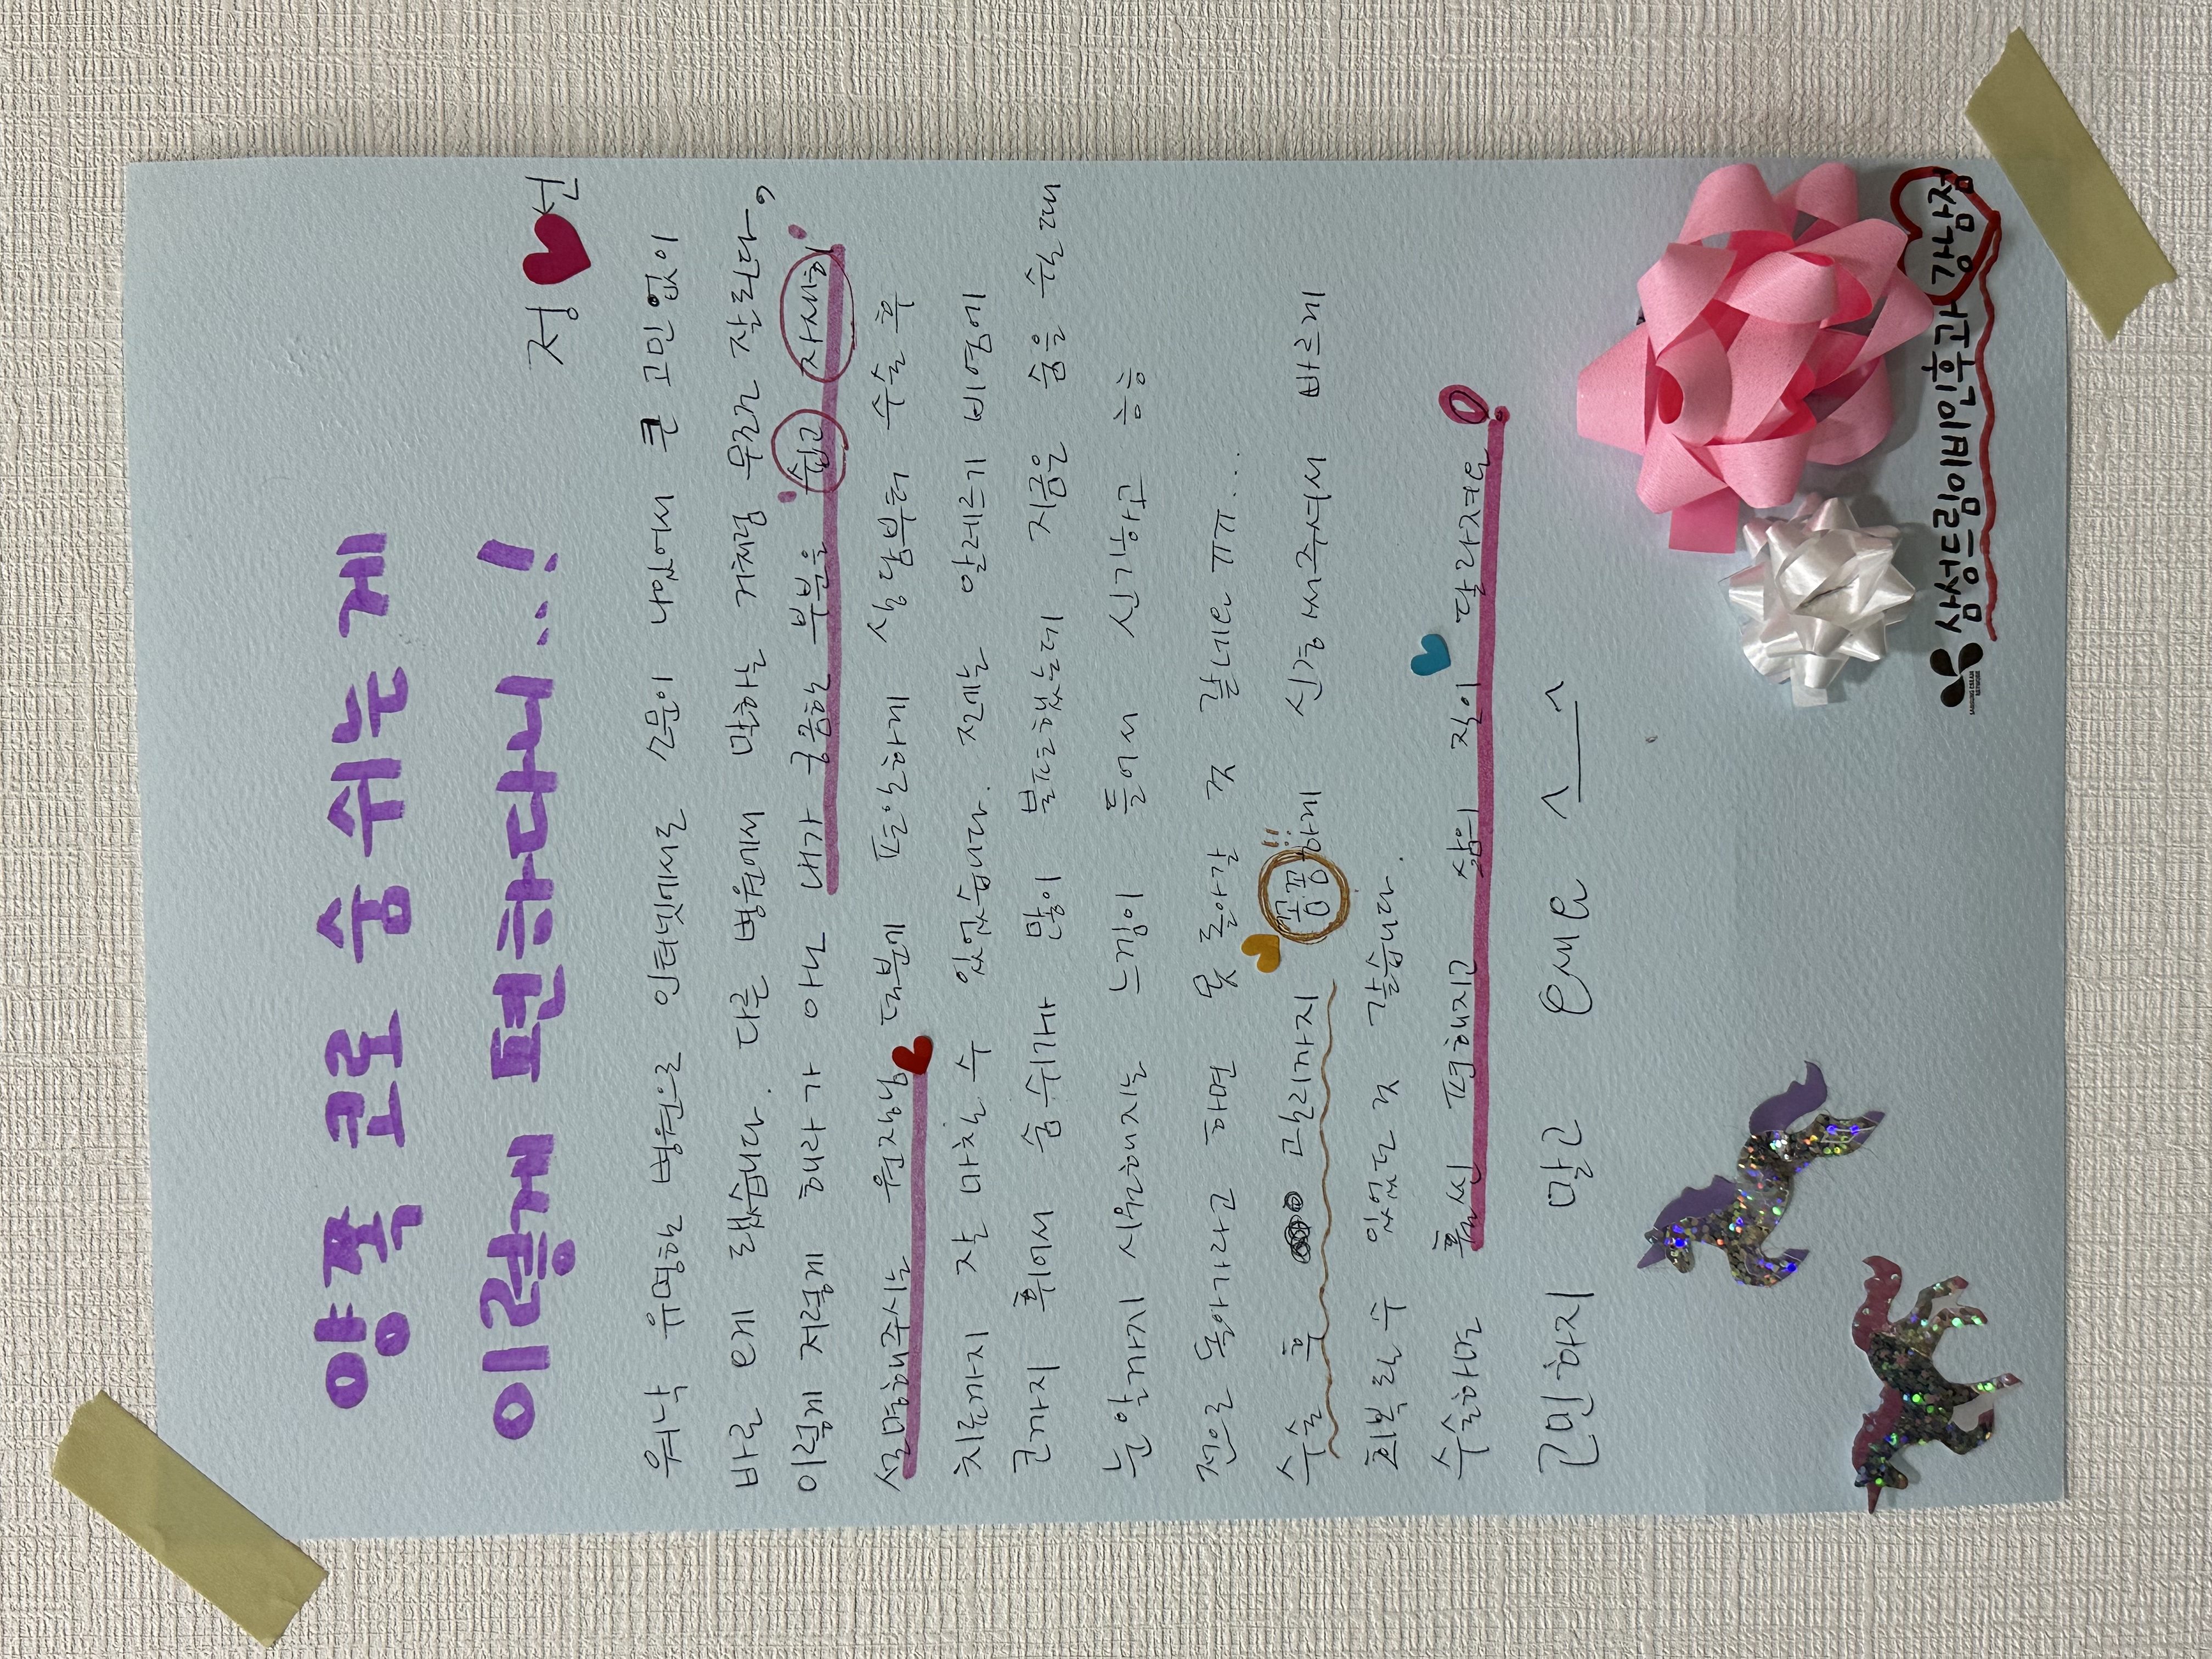 양쪽 코로 숨 쉬는게
이렇게 편하다니..!
정♥선
워낙 유명한 병원으로 인터넷에서도 소문이 나있어서 큰 고민없이
바로 오게 됐습니다. 다른 병원에서 말하는 거처럼 무조건 잘된다,
이렇게 저렇게 해라가 아닌 내가 궁금한 부분을 쉽고 자세히
설명해주시는 원장님♥ 덕분에 편안하게 상담부터 수술 후
치료까지 잘 마칠 수 있었습니다. 전에는 알레르기 비염에
코까지 휘어서 숨쉬기가 많이 불편했는데 지금은 숨을 쉴 때
눈 앞까지 시원해지는 느낌이 들어서 신기하고 ㅎㅎ
전으로 돌아가라고 하면 못 돌아갈 것 같네요 ㅠㅠ...
수술 후 관리까지 꼼꼼하게 신경써주셔서 빠르게
회복할 수 있었던 것 같습니다.
수술하면 훨씬 편해지고 삶의 질이 달라져요
고민하지 말고 오세요 ^__^